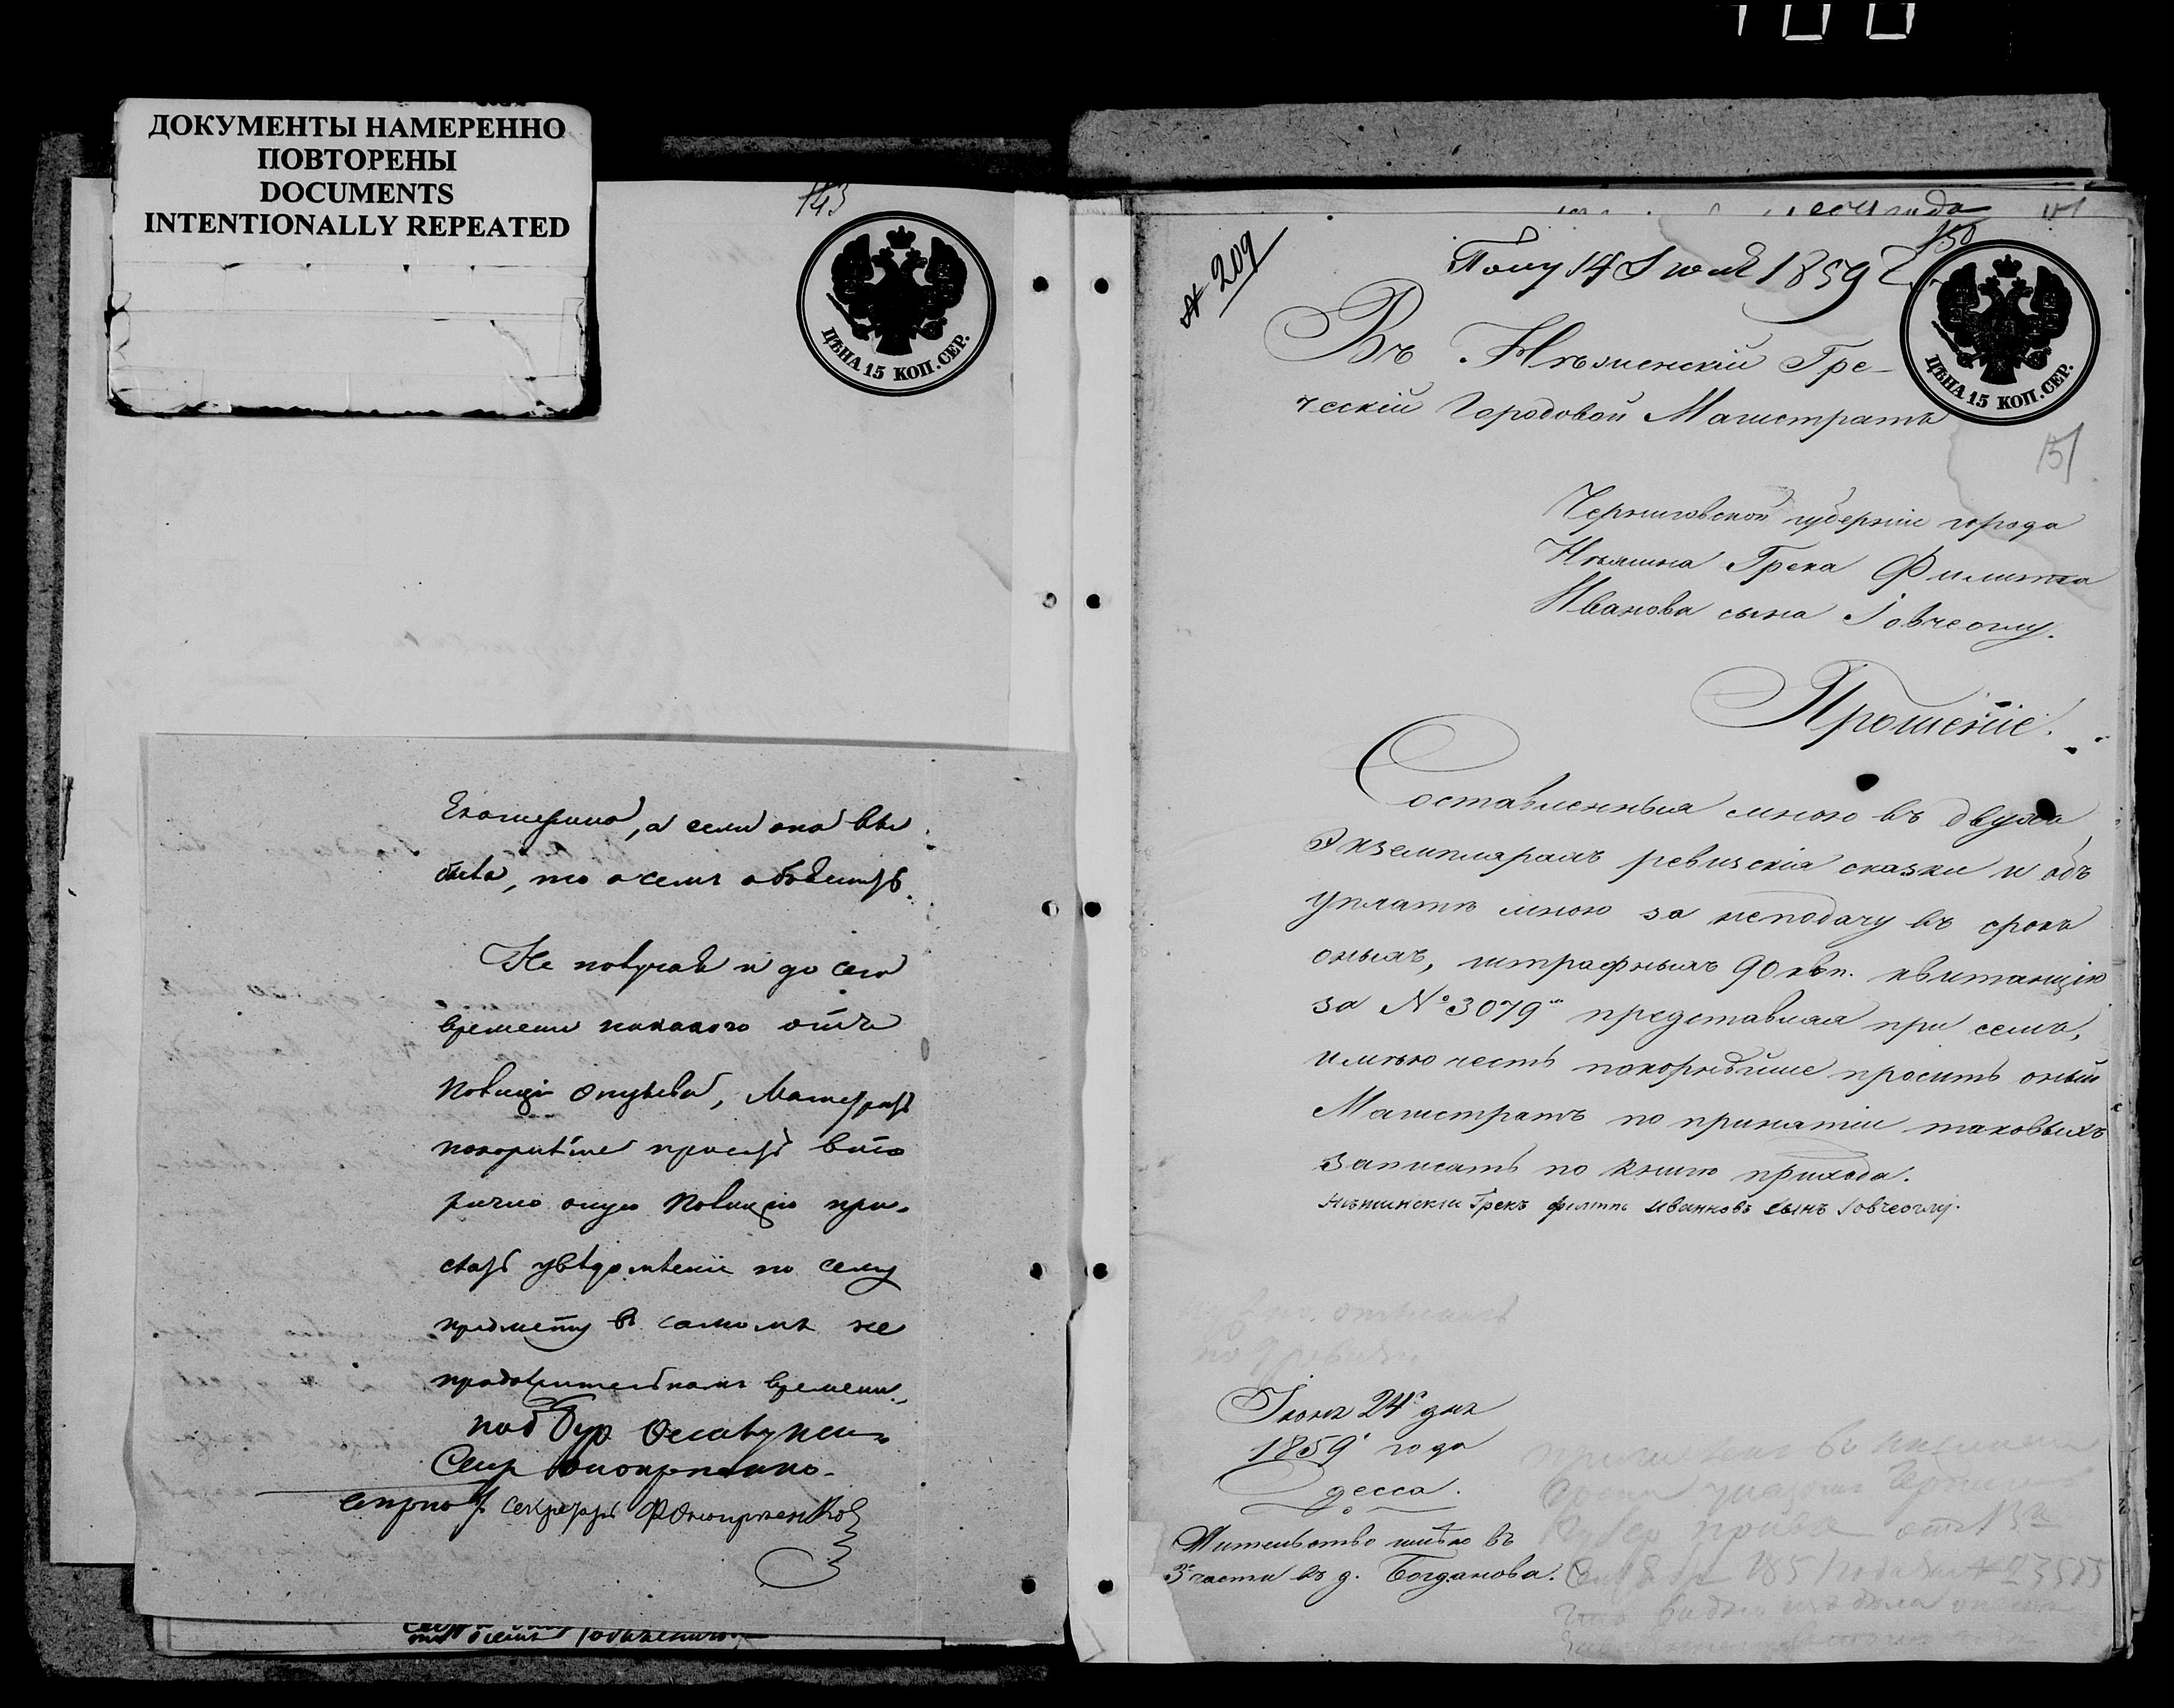 ДОКУМЕНТЫ НАМЕРЕННО
ПОВТОРЕНЫ
DOCUMENTS
INTENTIONALLY REPEATED
143
ЦѢНА 15 КОП. СЕР.
Екатерина, а если она вы
была, то о семъ объявить.
Не получая и до сего
времени никакого отъ
Полиціи отзыва, Магистратъ
покорнѣйше проситъ вто
рично оную Полицію при-
слать увѣдомленіе по сему
предмету въ самомъ не
продолжительномъ времени.
под Бур
Секр
Секретарь
№ 209
Полу 14 Іюля 1859 г.
150
151
ЦѢНА 15 КОП. СЕР.
Въ Нѣжинскій Гре-
ческій Городовой Магистратъ
151
Черниговской губерніи города
Нѣжина Грека Филиппа
Иванова сына Іовчеоглу.
Прошеніе.
Составленныя мною въ двухъ
Экземплярахъ ревизскія сказки и объ
уплатѣ мною за неподачу въ срокъ
оныхъ, штрафныхъ 90 коп. квитанцію
за № 3079 представляя при семъ,
имѣю честь покорнѣйше просить оный
Магистратъ по принятіи таковыхъ
записать по книгѣ прихода.
Нѣжинскій Грекъ Филиппъ Ивановъ сынъ Іовчеоглу.
Іюня 24 дня
1859 года
Одесса.
Жительство имѣю въ
3 части въ д. Богданова.